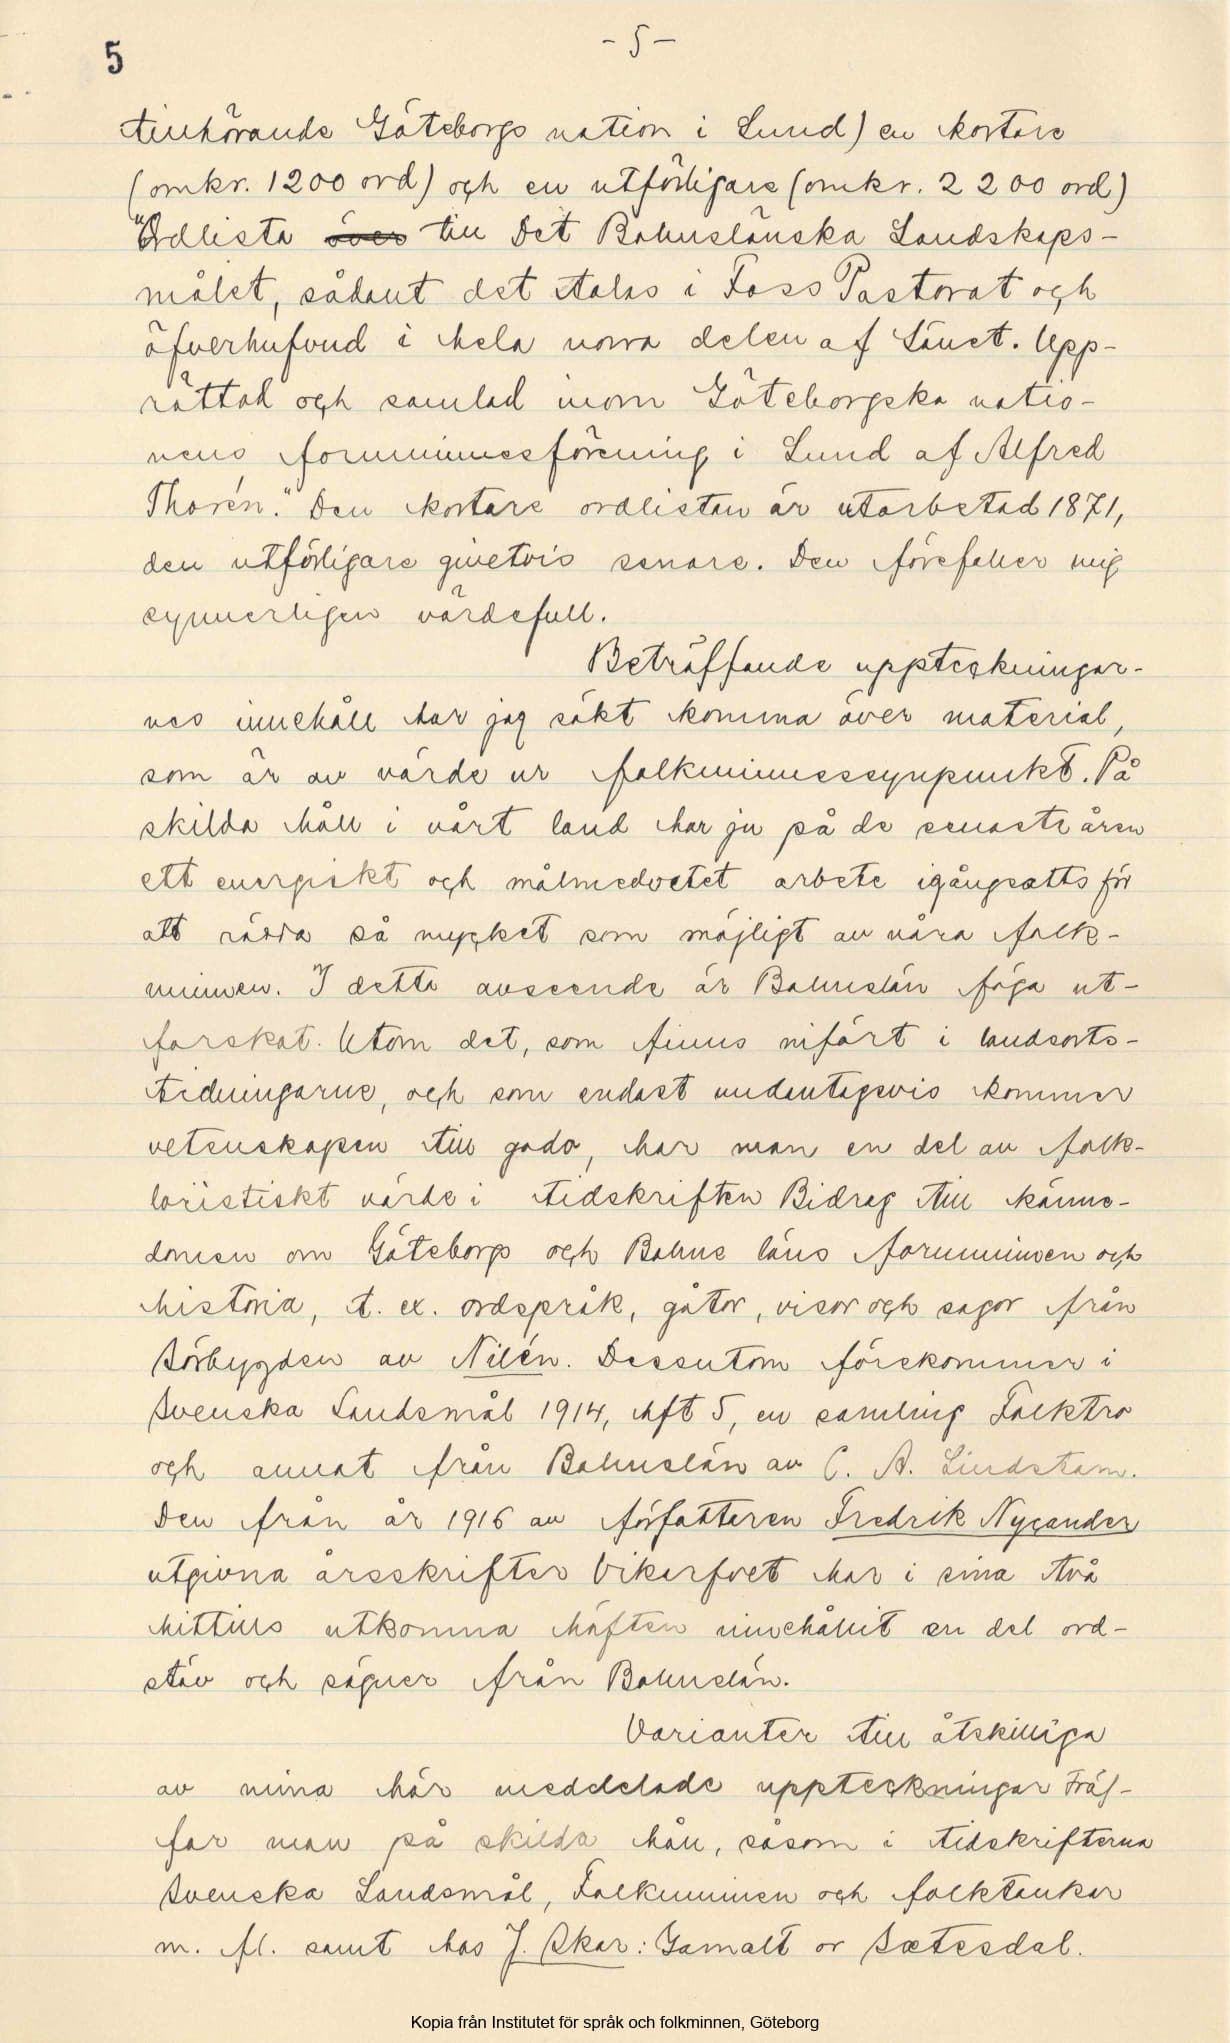 5
- 5 -
tillhörande Göteborgs nation i Lund) en kortare
(omkr. 1200 ord) och en utförligare (omkr. 2200 ord)
"Ordlista över till Det Bohuslänska Landskaps-
målet, sådant det talas i Foss Pastorat och
öfverhufvud i hela norra delen af Länet. Upp-
rättad och samlad inom Göteborgska natio-
nens fornminnesförening i Lund af Alfred
Thorén." Den kortare ordlistan är utarbetad 1871,
den utförligare givetvis senare. Den förefaller mig
synnerligen värdefull.
Beträffande uppteckningar-
nas innehåll har jag sökt komma över material,
som är av värde ur folkminnessynpunkt. På
skilda håll i vårt land har ju på de senaste åren
ett energiskt och målmedvetet arbete igångsatts för
att rädda så mycket som möjligt av våra folk-
minnen. I detta avseende är Bohuslän föga ut-
forskat. Utom det, som finns infört i landsorts-
tidningarne, och som endast undantagsvis kommer
vetenskapen till godo, har man en del av folk-
loristiskt värde i tidskriften Bidrag till känne-
domen om Göteborgs och Bohus läns fornminnen och
historia, t. ex. ordspråk, gåtor, visor och sagor från
Sörbygden av Nilén. Dessutom förekommer i
Svenska Landsmål 1914, hft 5, en samling Folktro
och annat från Bohuslän av C. A. Lindstam.
Den från år 1916 av författaren Fredrik Nycander
utgivna årsskriften Vikarfvet har i sina två
hittills utkomna häften innehållit en del ord-
stäv och sägner från Bohuslän.
Varianter till åtskilliga
av mina här meddelade uppteckningar träf-
far man på skilda håll, såsom i tidskrifterna
Svenska Landsmål, Folkminnen och folktankar
m. fl. samt hos J. Skar: Gamalt or Sætesdal.
Kopia från Institutet för språk och folkminnen, Göteborg